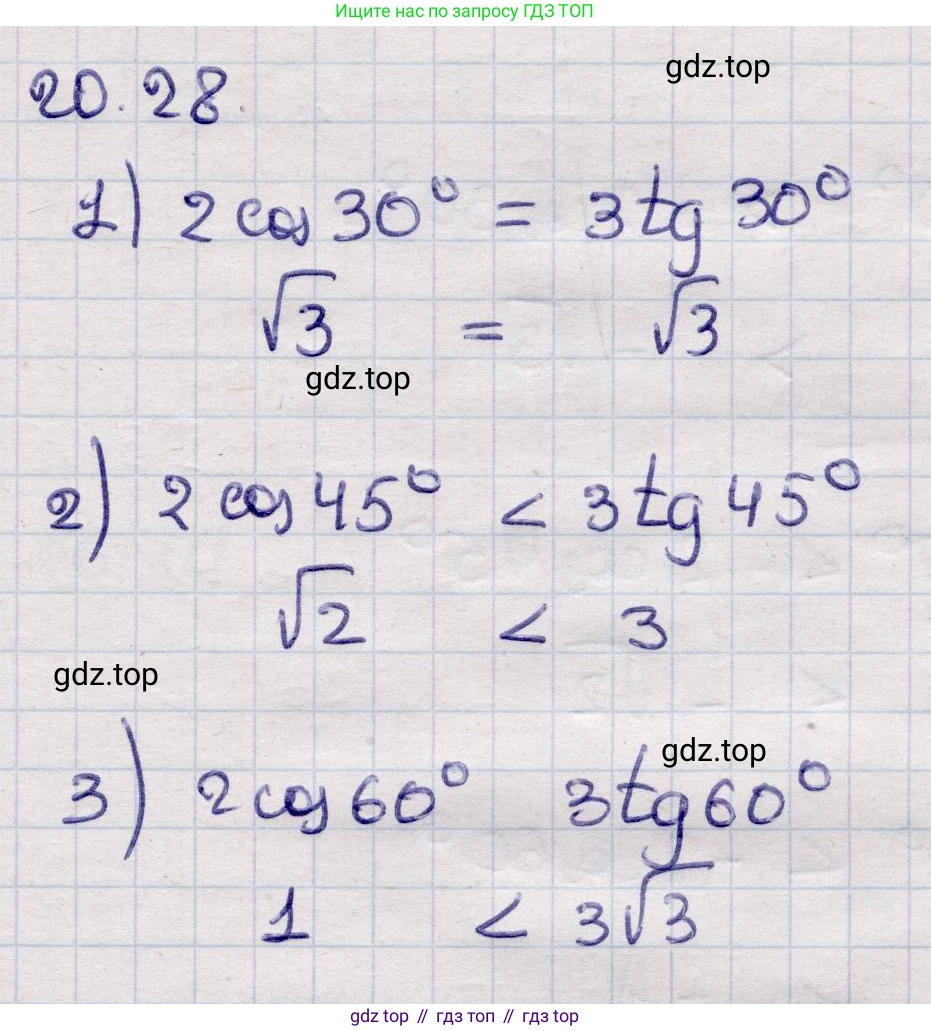 Ищите нас по запросу ГДЗ ТОП
gdz.top
20.28.
1) 2 cos 30° = 3 tg 30°
√3 = √3
gdz.top
2) 2 cos 45° < 3 tg 45°
√2 < 3
gdz.top
gdz.top
3) 2 cos 60° 3 tg 60°
1 < 3√3
gdz.top // гдз топ // гдз.top